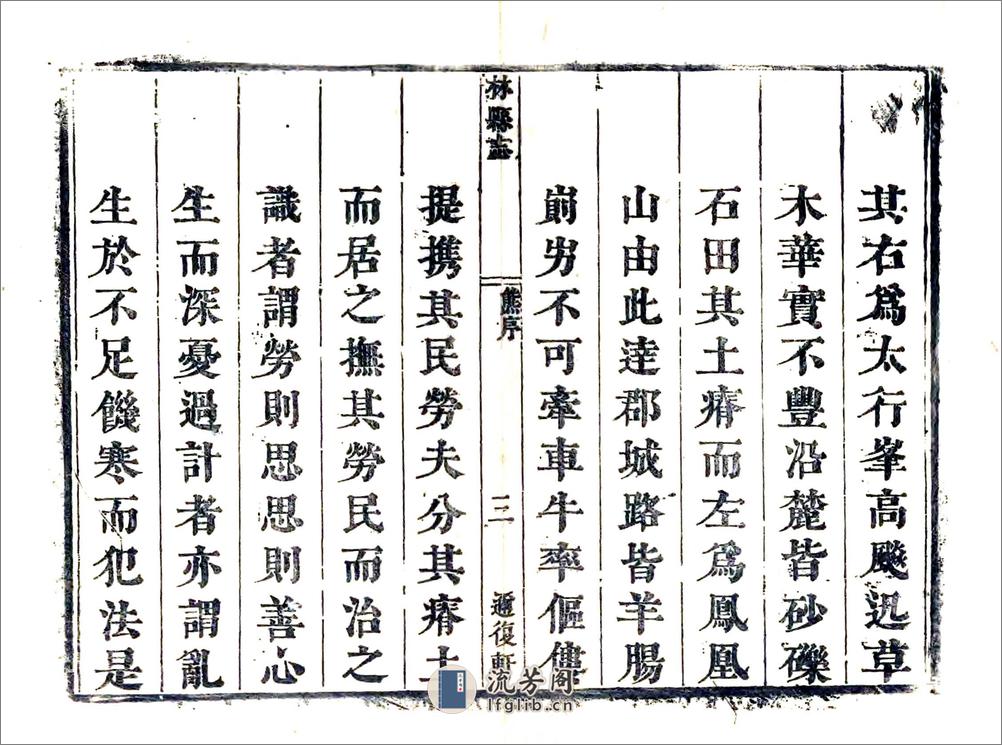 其右爲太行峯高颷迅草
木華實不豐沿麓皆砂礫
石田其土瘠而左爲鳳凰
山由此逹郡城路皆羊腸
崱屴不可牽車牛率傴僂
林縣志
熊序
三
邇復軒
提携其民勞夫分其瘠土
而居之撫其勞民而治之
識者謂勞則思思則善心
生而深憂過計者亦謂亂
生於不足饑寒而犯法是
流芳阁
lfglib.cn